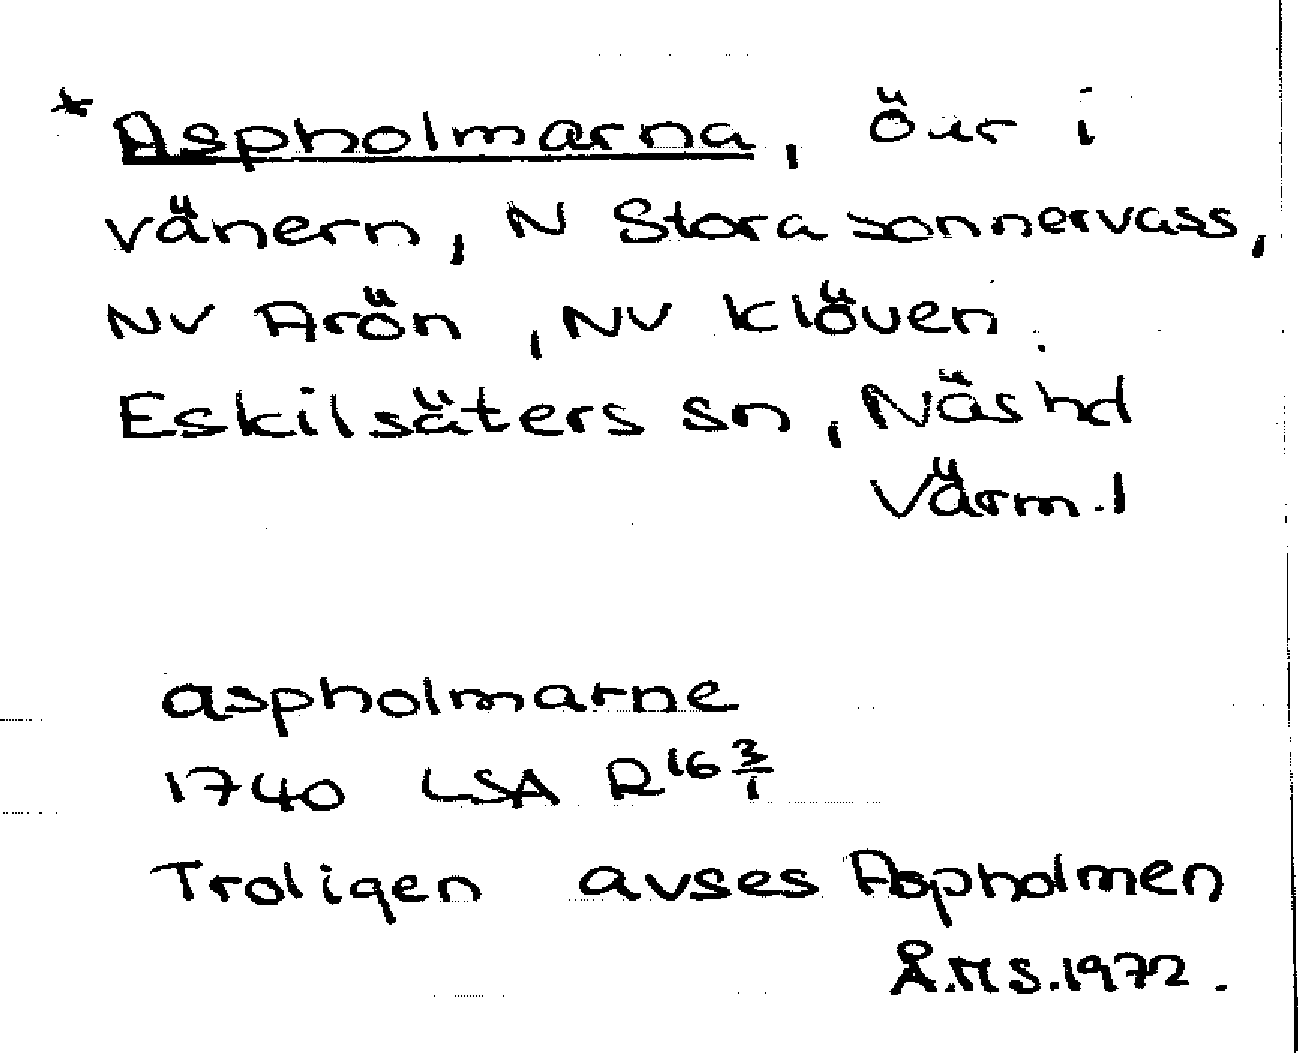 * Aspholmarna, öar i
vänern, N Stora sonnervass,
NV Arön, NV Klöven.
Eskilsäters sn, Näs hd
Värm.l
aspholmarne
1740 LSA R16 3/1
Troligen avses Aspholmen
Å.M S.1972.